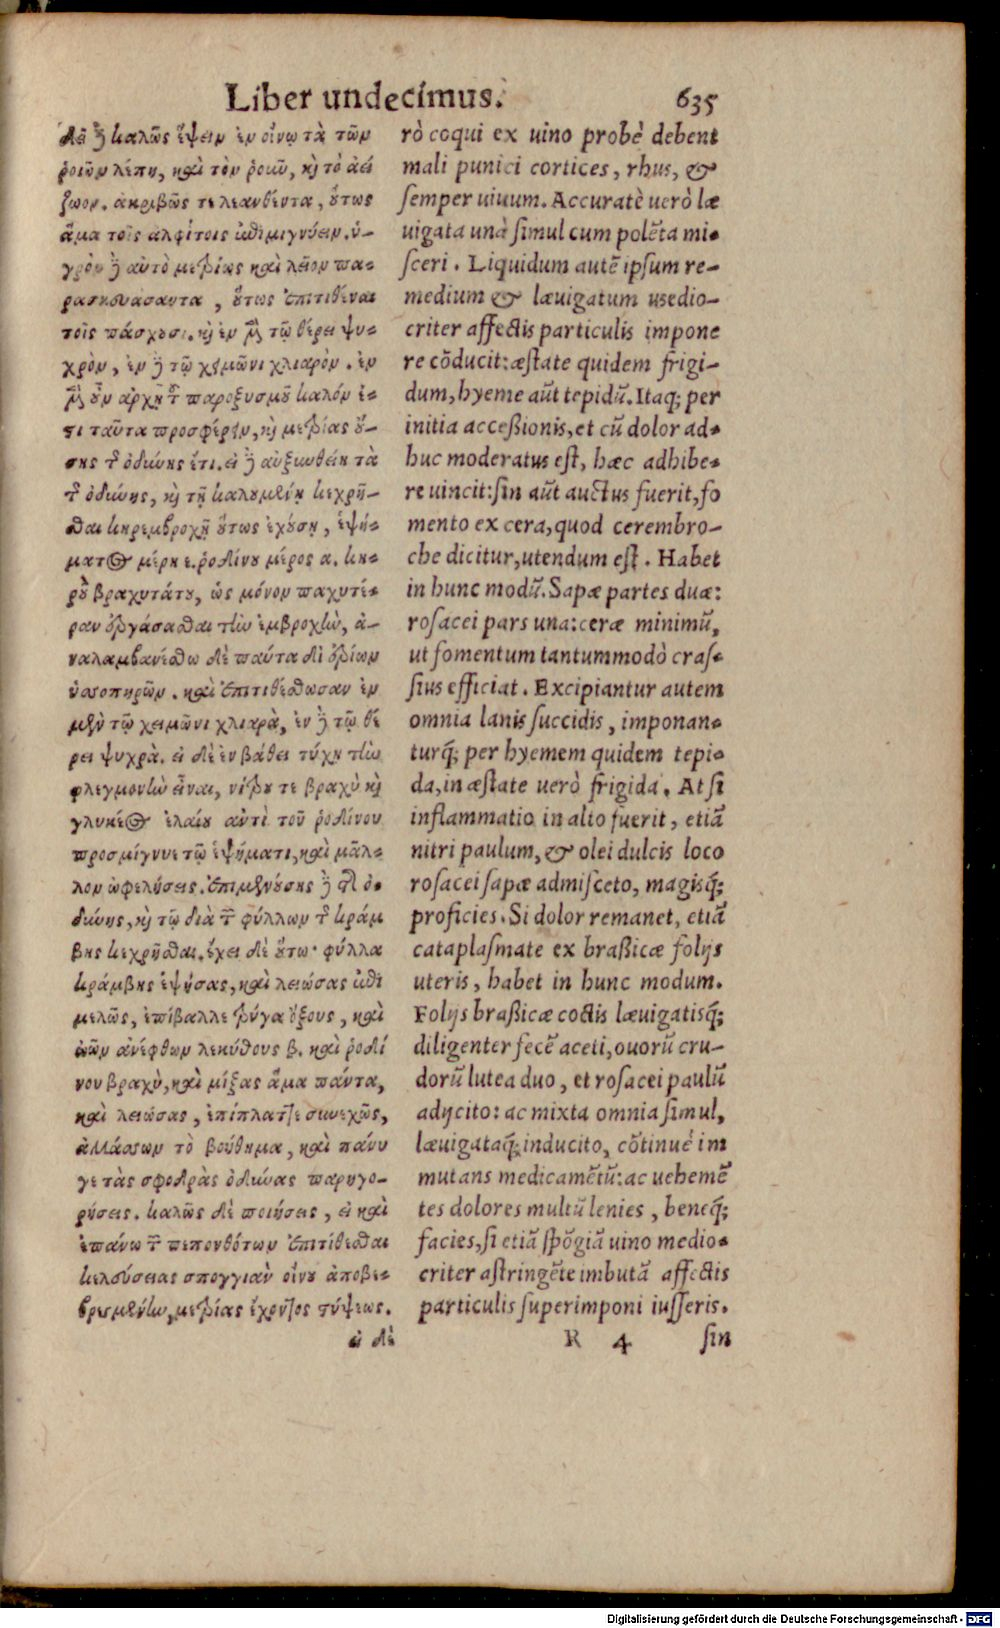 Liber undecimus. 635
δεῖ δὲ καλῶς ἕψειν ἐν οἴνῳ τὰ τῶν
ῥοιῶν λέπη, καὶ τὸν ῥοῦν, καὶ τὸ ἀεί
ζωον. ἀκριβῶς τε λεανθέντα, οὕτως
ἅμα τοῖς ἀλφίτοις ἐπιμιγνύειν. ὑ-
γρὸν δὲ αὐτὸ μετρίως καὶ λεῖον πα-
ρασκευάσαντα, οὕτως ἐπιτιθέναι
τοῖς πάσχουσι. καὶ ἐν μὲν τῷ θέρει ψυ-
χρὸν, ἐν δὲ τῷ χειμῶνι χλιαρὸν. ἐν
μὲν οὖν ἀρχῇ τοῦ παροξυσμοῦ καλόν ἐ-
στι ταῦτα προσφέρειν, καὶ μετρίας οὔ-
σης τῆς ὀδύνης ἔτι. εἰ δὲ αὐξηθείη τὰ
τῆς ὀδύνης, καὶ τῇ καλουμένῃ κεχρῆ-
σθαι κηρεμβροχῇ οὕτως ἐχούσῃ, ἑψή-
ματος μέρη ε. ῥοδίνου μέρος α. κη-
ροῦ βραχυτάτου, ὡς μόνον παχυτέ-
ραν ἐργάσασθαι τὴν ἐμβροχὴν, ἀ-
ναλαμβανέσθω δὲ παύτα δι ἐρίων
οἰσυπηρῶν. καὶ ἐπιτιθέσθωσαν ἐν
μὲν τῷ χειμῶνι χλιαρὰ, ἐν δὲ τῷ θέ
ρει ψυχρὰ. εἰ δὲ ἐν βάθει τύχῃ τὴν
φλεγμονὴν εἶναι, νίτρου τε βραχὺ καὶ
γλυκέος ἐλαίου ἀντὶ τοῦ ῥοδίνου
προσμίγνυε τῷ ἑψήματι, καὶ μᾶλ-
λον ὠφελήσεις. ἐπιμενούσης δὲ τῆς ὀ-
δύνης, καὶ τῷ διὰ τῶν φύλλων τῆς κράμ
βης κεχρῆσθαι. ἔχει δὲ οὕτω· φύλλα
κράμβης ἑψήσας, καὶ λειώσας ἐπι
μελῶς, ἐπίβαλλε τρύγα ὄξους, καὶ
ὠῶν ἀνέφθων λεκύθους β. καὶ ῥοδί
νου βραχὺ, καὶ μίξας ἅμα πάντα,
καὶ λειώσας, ἐπίπλαττε συνεχῶς,
ἀλλάσσων τὸ βοήθημα, καὶ πάνυ
γε τὰς σφοδρὰς ὀδύνας παρηγο-
ρήσεις. καλῶς δὲ ποιήσεις, εἰ καὶ
ἐπάνω τῶν πεπονθότων ἐπιτίθεσθαι
κελεύσειας σπογγιὰν οἴνου ἀποβε-
βρεγμένην, μετρίας ἔχοντος στύψεως.
εἰ δὲ
rò coqui ex uino probè debent
mali punici cortices, rhus, &
semper uiuum. Accuratè uerò læ
uigata unà simul cum polẽta mi-
sceri. Liquidum autẽ ipsum re-
medium & læuigatum usedio-
criter affectis particulis impone
re cõducit: æstate quidem frigi-
dum, hyeme aũt tepidũ. Itaq; per
initia accessionis, et cũ dolor ad-
huc moderatus est, hæc adhibe-
re uincit: sin aũt auctus fuerit, fo
mento ex cera, quod cerembro-
che dicitur, utendum est. Habet
in hunc modũ. Sapæ partes duæ:
rosacei pars una: ceræ minimũ,
ut fomentum tantummodò cras-
sius efficiat. Excipiantur autem
omnia lanis succidis, imponan-
turq́; per hyemem quidem tepi-
da, in æstate uerò frigida. At si
inflammatio in alto fuerit, etiã
nitri paulum, & olei dulcis loco
rosacei sapæ admisceto, magisq́;
proficies. Si dolor remanet, etiã
cataplasmate ex brassicæ folijs
uteris, habet in hunc modum.
Folijs brassicæ coctis læuigatisq́;
diligenter fecẽ aceti, ouorũ cru-
dorũ lutea duo, et rosacei paulũ
adijcito: ac mixta omnia simul,
læuigataq́; inducito, cõtinuè im
mutans medicamẽtũ: ac uehemẽ
tes dolores multũ lenies, beneq́;
facies, si etiã spõgiã uino medio-
criter astringẽte imbutã affectis
particulis superimponi iusseris.
R 4 sin
Digitalisierung gefördert durch die Deutsche Forschungsgemeinschaft - DFG